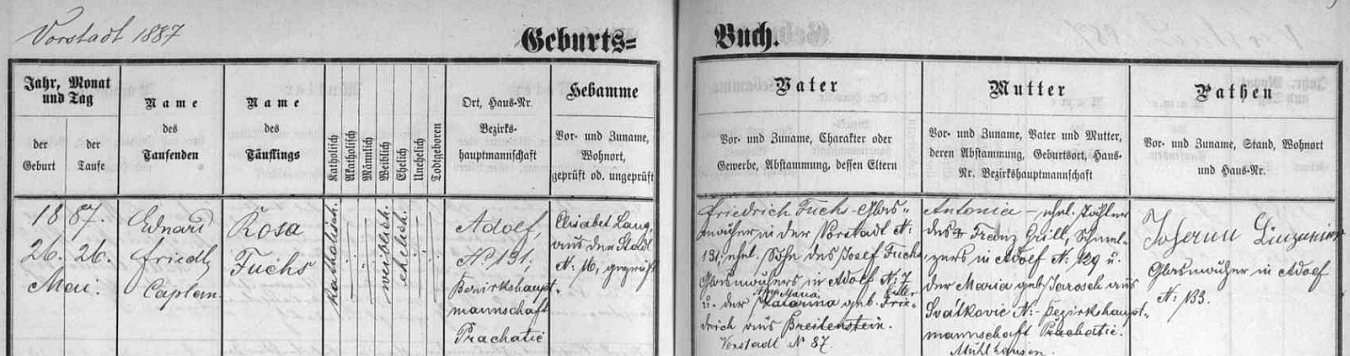 Vorstadt 1887
Geburts=
Buch.
Jahr, Monat
und Tag
der
Geburt
der
Taufe
Name
des
Taufenden
Name
des
Täuflings
Katholisch
Akatholisch
Männlich
Weiblich
Ehelich
Unehelich
Todtgeboren
Ort, Haus-Nr.
Bezirks-
hauptmannschaft
Hebamme
Vor- und Zuname,
Wohnort,
geprüft od. ungeprüft
Vater
Vor- und Zuname, Charakter oder
Gewerbe, Abstammung, dessen Eltern
Mutter
Vor- und Zuname, Vater und Mutter,
deren Abstammung, Geburtsort, Haus-
Nr. Bezirkshauptmannschaft
Pathen
Vor- und Zuname, Stand, Wohnort
und Haus-Nr.
18 87.
26. 26.
Mai.
Eduard
Friedl
Caplan
Rosa
Fuchs
katholisch.
weiblich.
ehelich.
Adolf,
N. 131,
Bezirkshaupt-
mannschaft
Prachatic
Elisabet Lang,
aus der Stadt
N. 16, geprüft
Friedrich Fuchs, Glas-
macher in der Vorstadt N.
131, ehel. Sohn des Josef Fuchs
Glasmachers in Adolf N. 7
u. der Katarina geb. Frie-
Maria
drich aus Breitenstein.
Vorstadt N 87.
Antonia - ehel. Tochter
des Franz Quill, Schmel-
zers in Adolf N. 129 u.
der Maria geb. Jarosch aus
Svatkovic N. - Bezirkshaupt-
mannschaft Prachatic.
Mühlhausen
Glasmacher in Adolf
N. 133.